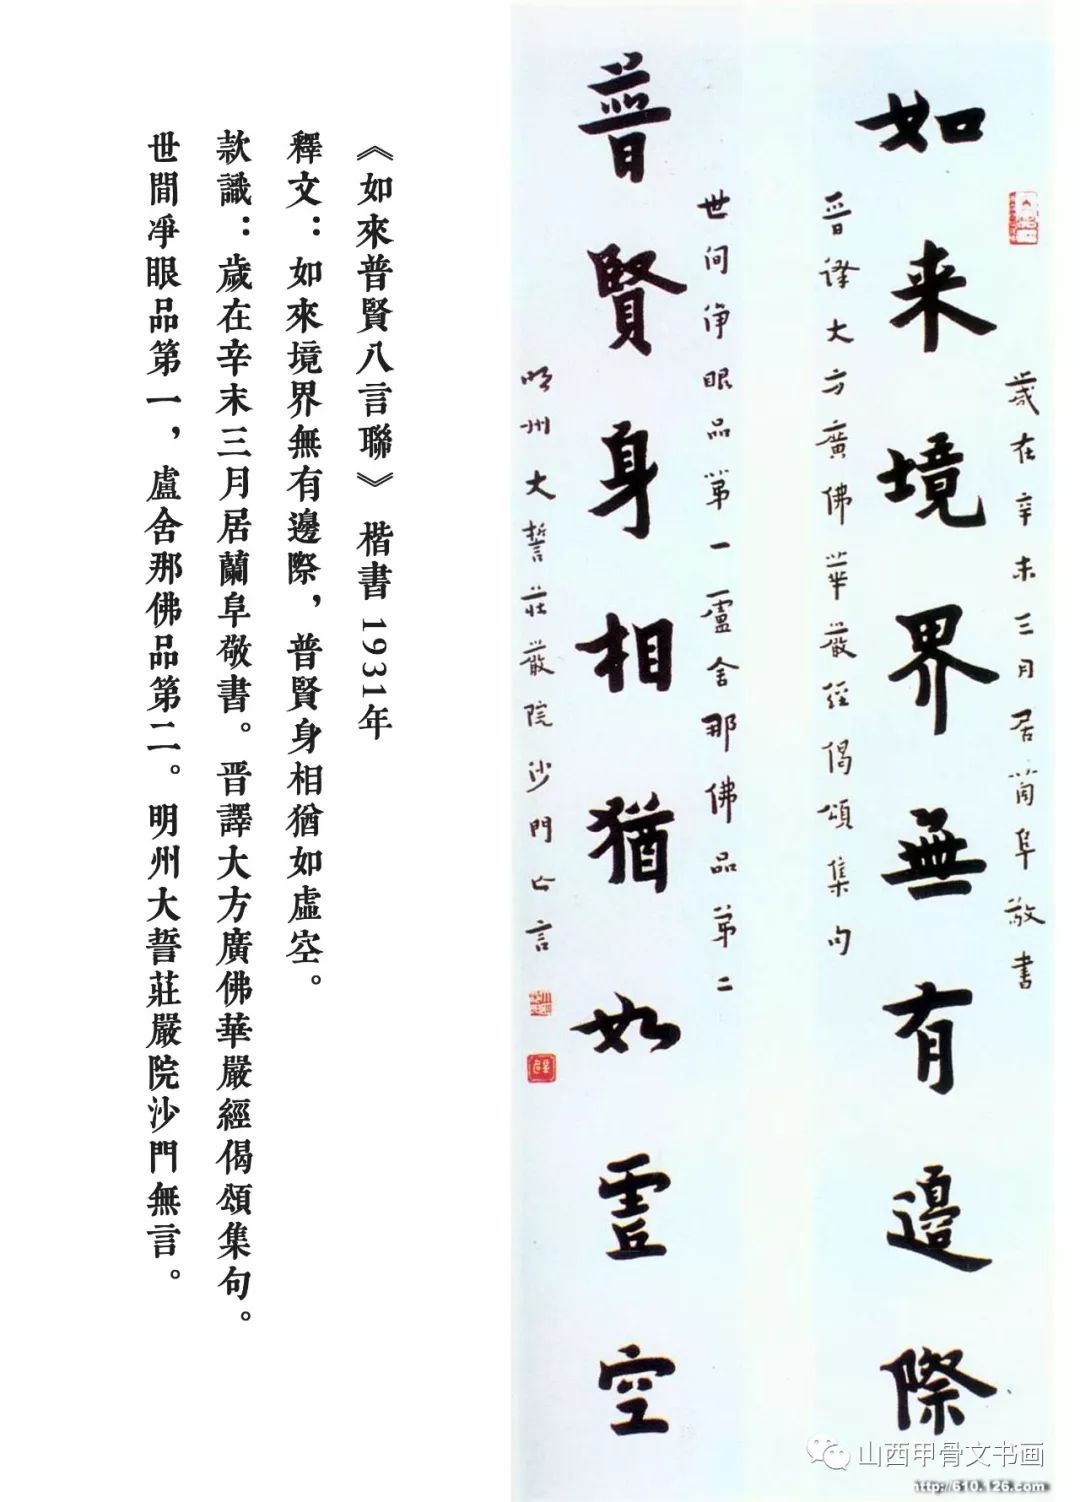 歲在辛未三月居蘭阜敬書
如来境界無有邊際
晉譯大方廣佛華嚴經偈頌集句
世间淨眼品第一盧舍那佛品第二
普賢身相猶如虛空
明州大誓莊嚴院沙門亡言
《如來普賢八言聯》 楷書 1931年
釋文：如來境界無有邊際，普賢身相猶如虛空。
款識：歲在辛末三月居蘭阜敬書。晋譯大方廣佛華嚴經偈頌集句。
世間凈眼品第一，盧舍那佛品第二。明州大誓莊嚴院沙門無言。
山西甲骨文书画
http://610.126.com